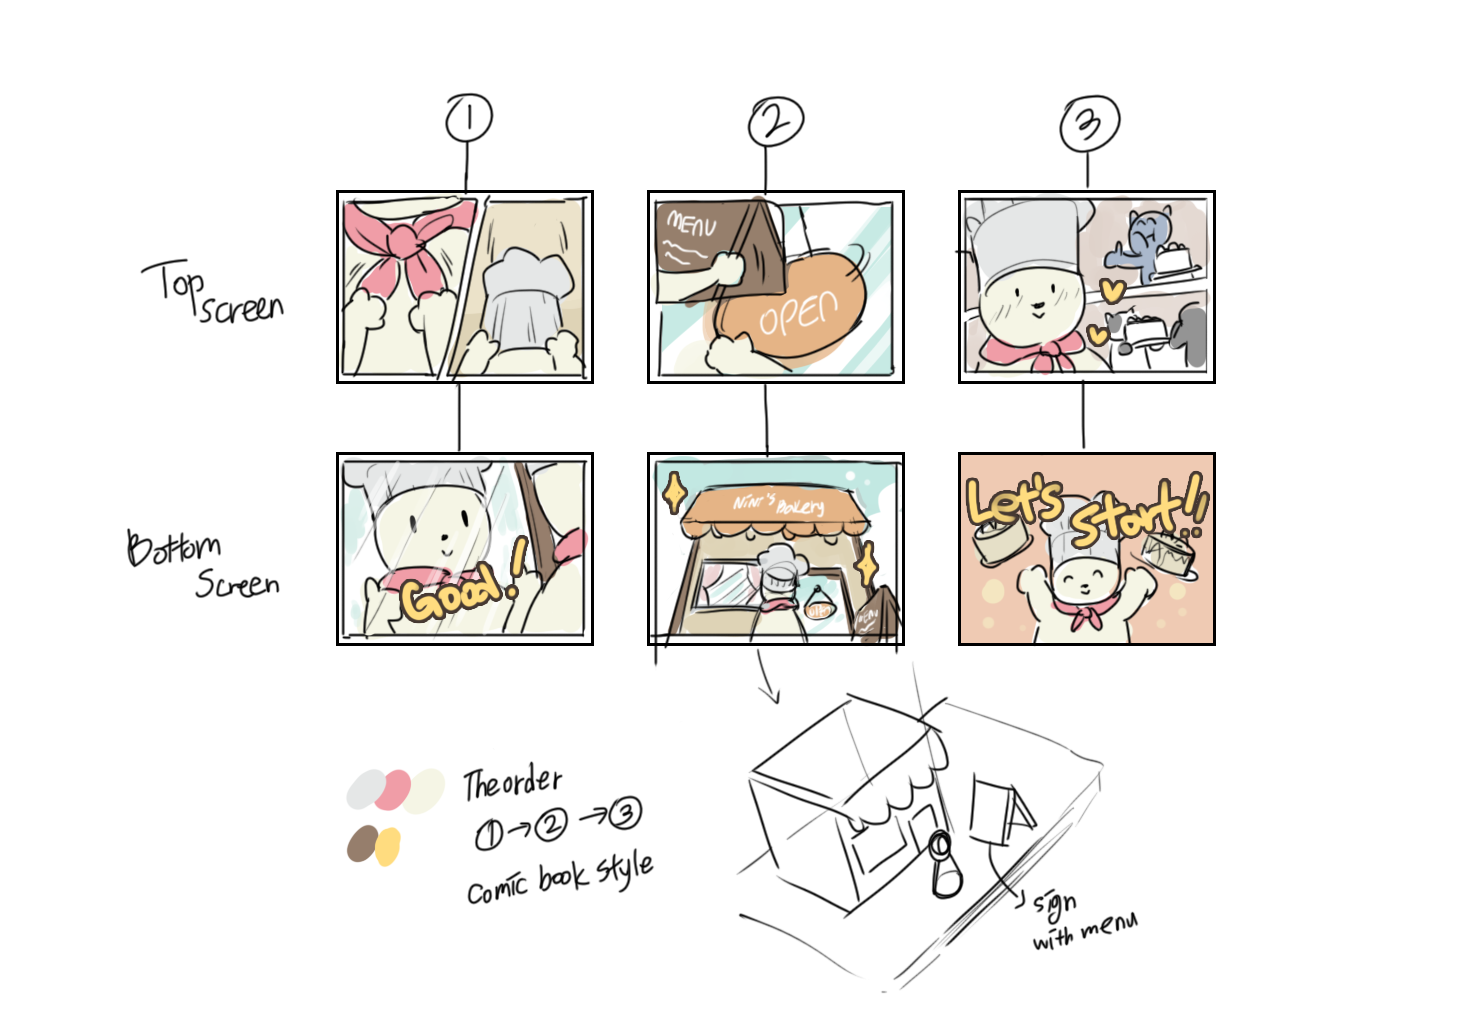 1
2
3
Top
screen
MENU
OPEN
Bottom
Screen
Good!
Nini's Bakery
OPEN
MENU
Let's
Start!!
The order
1 → 2 → 3
comic book style
sign
with menu